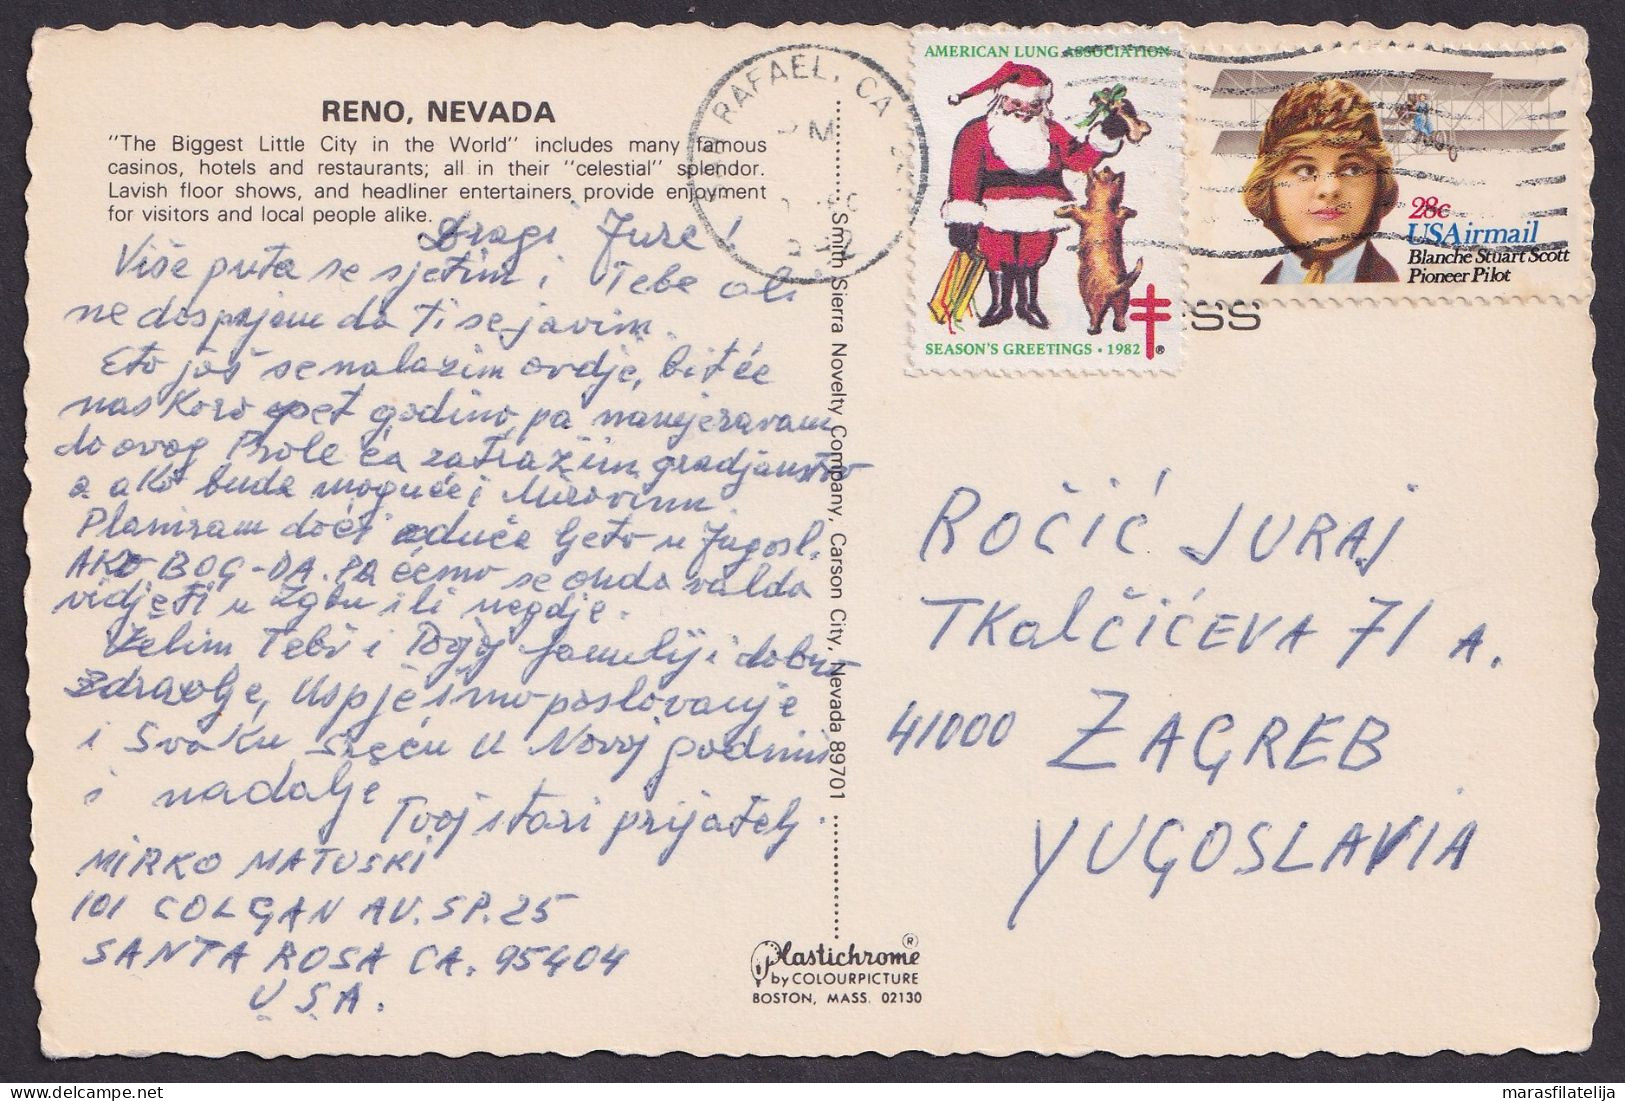 RENO, NEVADA
"The Biggest Little City in the World" includes many famous
casinos, hotels and restaurants; all in their "celestial" splendor.
Lavish floor shows, and headliner entertainers provide enjoyment
for visitors and local people alike.
Dragi Jure!
Više puta se sjetim i Tebe ali
ne dospijem da ti se javim.
Eto još se nalazim ovdje, bit će
naskoro pet godina, pa namjeravam
do ovog Proleća zatražim gradjanstvo
a ako bude moguće i Mirovinu
Planiram doći iduće ljeto u Jugosl.
AKO BOG-DA. PA ćemo se onda valda
vidjeti u Zgbu ili negdje.
Želim Tebi i Tvojoj familiji dobro
Zdravlje, Uspješno poslovanje
i Svaku Sreću u Novoj godini
i nadalje
Tvoj stari prijatelj.
MIRKO MATUSKI
101 COLGAN AV. SP. 25
SANTA ROSA CA. 95404
U.S.A.
Smith Sierra Novelty Company, Carson City, Nevada 89701
Plastichrome ®
by COLOURPICTURE
BOSTON, MASS. 02130
RAFAEL, CA
PM
AMERICAN LUNG ASSOCIATION
SEASON'S GREETINGS • 1982
®
28c
USAirmail
Blanche Stuart Scott
Pioneer Pilot
ESS
ROČIĆ JURAJ
TKalČIĆEVA 71 A.
41000 ZAGREB
YUGOSLAVIA
delcampe.net
marasfilatelija